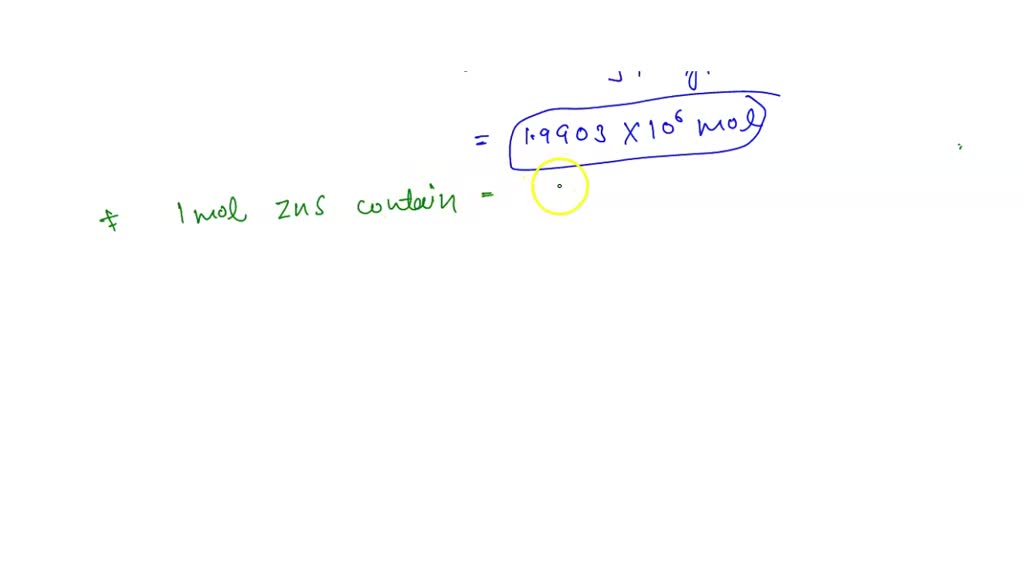 = 1.9903 X 10⁶ mol
* 1 mol ZnS contain =